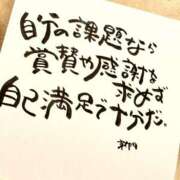 自分の課題なら
賞賛や感謝を
求めず
自己満足で十分だ。